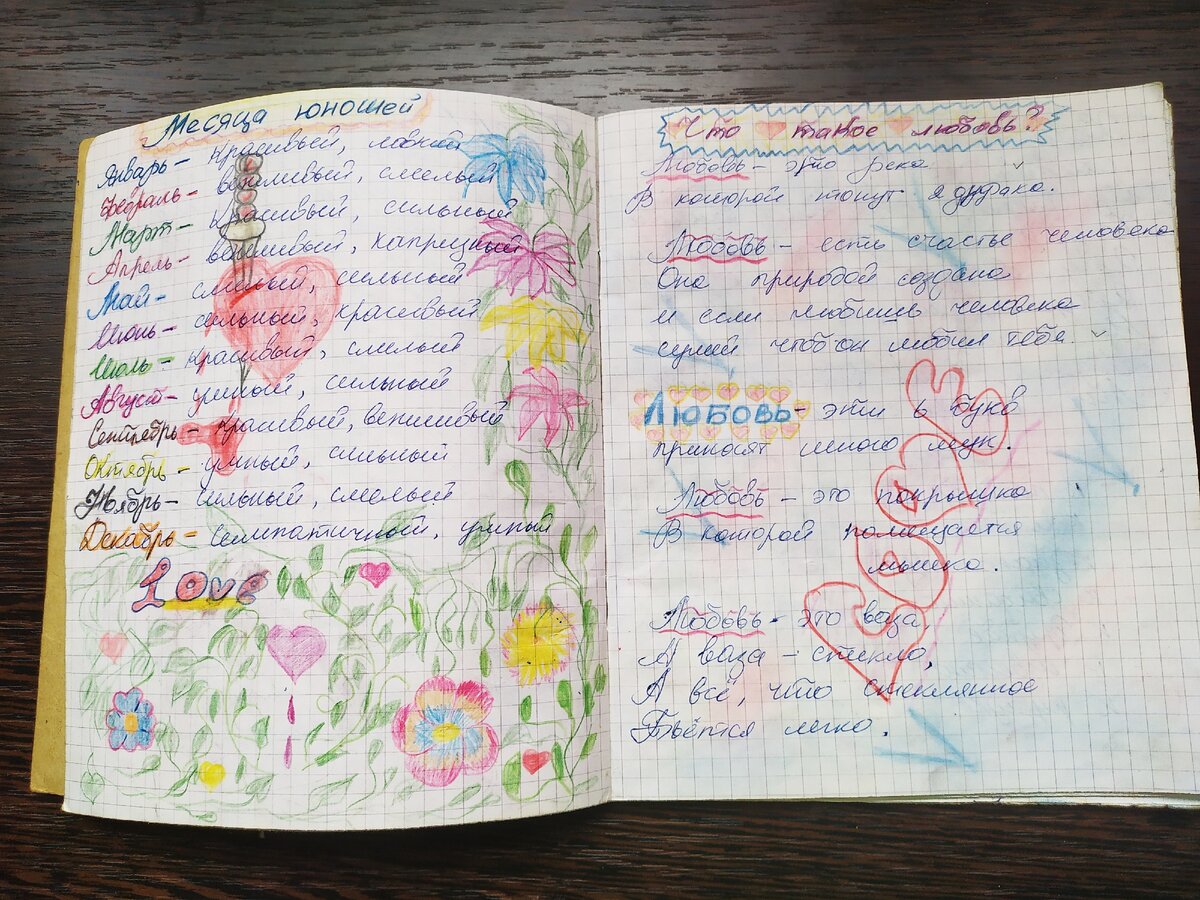 Месяца юношей
Январь – красивый, ловкий
Февраль – вежливый, смелый
Март – красивый, сильный
Апрель – вежливый, капризный
Май – смелый, сильный
Июнь – сильный, красивый
Июль – красивый, смелый
Август – умный, сильный
Сентябрь – красивый, вежливый
Октябрь – умный, сильный
Ноябрь – сильный, смелый
Декабрь – симпатичный, умный
Love
Что такое любовь?
Любовь – это река
В которой тонут
Любовь – есть счастье человека
Она природой создана
и если любишь человека
сумей чтоб он любил тебя.
Любовь – эти 6 букв
приносят много мук.
Любовь – это покрышка
В которой помещается
мышка.
Любовь - это ваза,
А ваза – стекло,
А всё, что стеклянное
Бьётся легко.